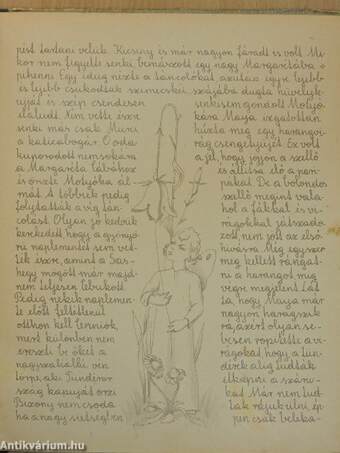 pest tartani velük. Kicsiny is már nagyon fáradt is volt. Mi-
kor nem figyelte senki, bemászott egy nagy Margarétába
phenni. Egy ideig nézte a táncolókat, azután egyre lejebb
és lejebb csukódtak szemecskéi, szájába dugta hüvelyk-
ujját és szép csendesen
elaludt. Nem vette észre
senki már csak Muci
a katicabogár. Ő oda
kuporodott nemsokára
a Margaréta lábához
és őrizte Motyóka ál-
mát. A többiek pedig
folytatták a víg tán-
colást. Olyan jó kedvük
kerekedett hogy a gyönyö-
rű naplementét sem vet-
ték észre, amint a Sas-
hegy mögött már majd-
nem teljesen lebukott.
Pedig nekik naplemen-
te előtt feltétlenül
otthon kell lenniök,
mert különben nem
ereszti be őket a
nagyszakállú vén
törpe, aki Tündéror-
szág kapuját őrzi.
Bizony nem csoda
ha a nagy sietségben
senkisem gondolt Motyó-
kára. Maya izgatottan
húzta meg egy harangvi-
rág csengetyűjét. Ez volt
a jel, hogy jöjjön a szellő
és állítsa elő a
De a bolondos
szellő megint vala-
hol a fákkal és vi-
rágokkal játszado-
zott, nem jött az első
hívásra. Míg egyszer
meg kellett rángat-
ni a harangot míg
végre megjelent. Lát-
ta, hogy Maya már
nagyon haragszik
rája, ezért olyan se-
besen röpítette a vi-
rágokat, hogy a tün-
dérek alig tudták
a szárnyu-
kat. Már nem tud-
tak rájuk ülni, ép-
pen csak beleka-
Antikvárium.hu